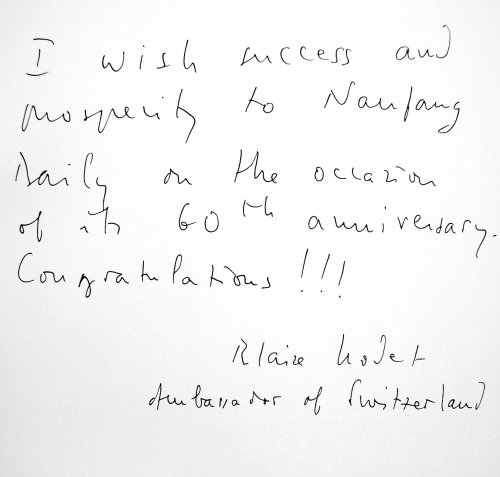 I wish success and
prosperity to Nanfang
Daily on the occasion
of its 60th anniversary.
Congratulations !!!
Blaise Godet
Ambassador of Switzerland